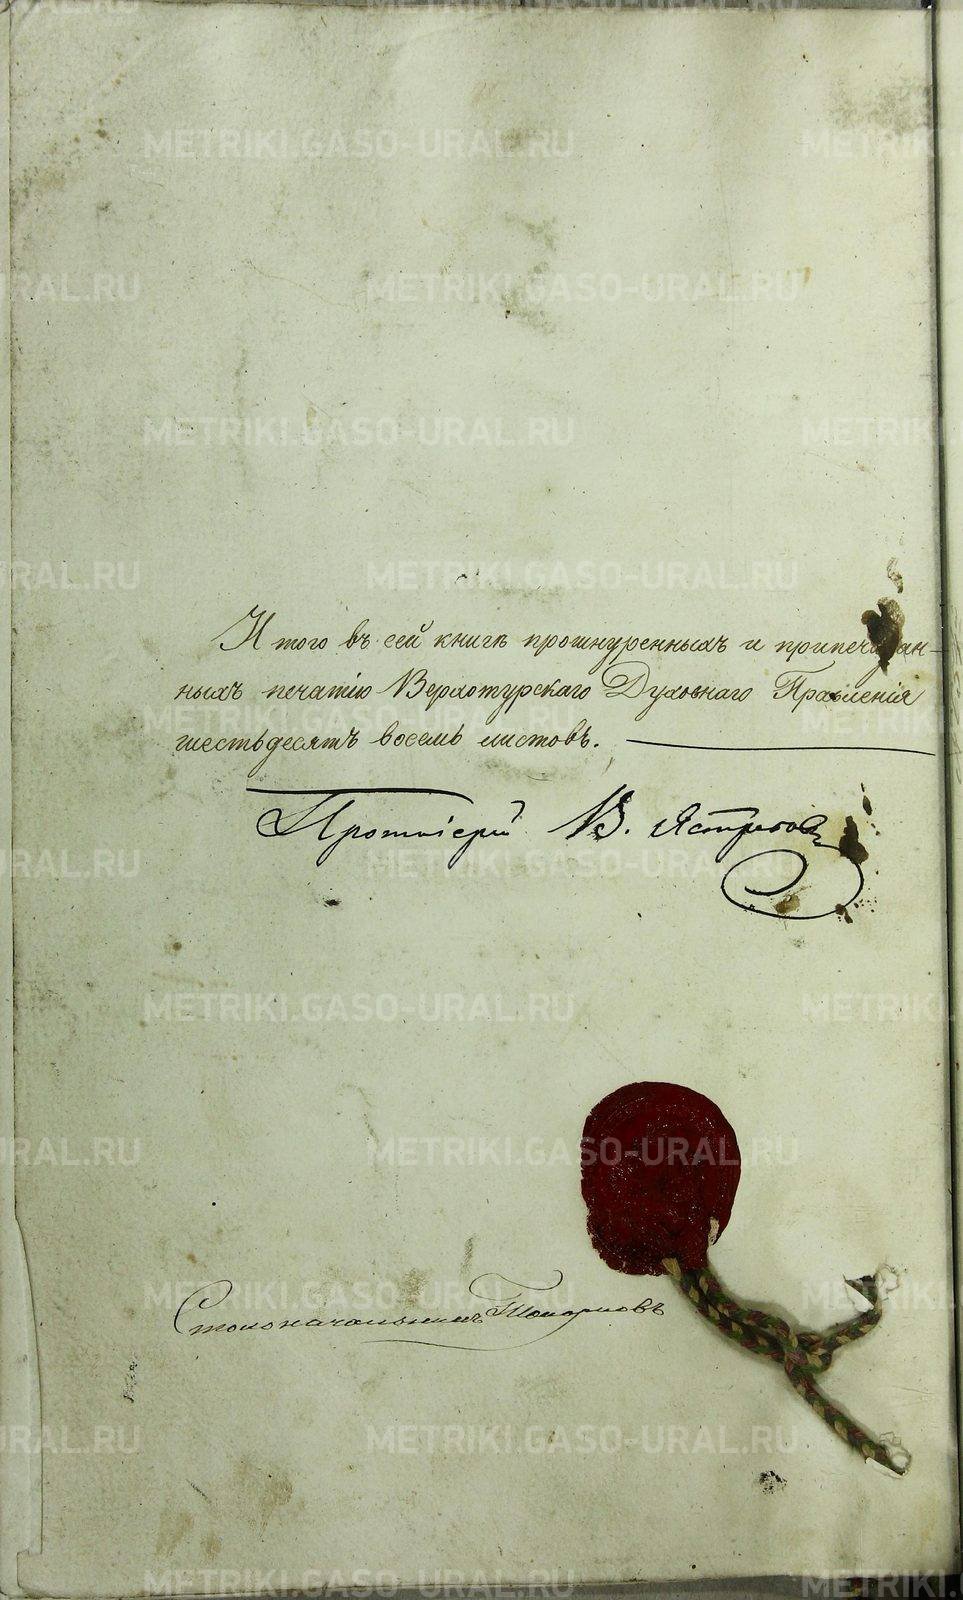 И того въ сей книгѣ прошнуренныхъ и припечатан-
ныхъ печатію Верхотурскаго Духовнаго Правленія
шестьдесятъ восемь листовъ.
Протоіерей В.
Столоначальникъ
METRIKI.GASO-URAL.RU